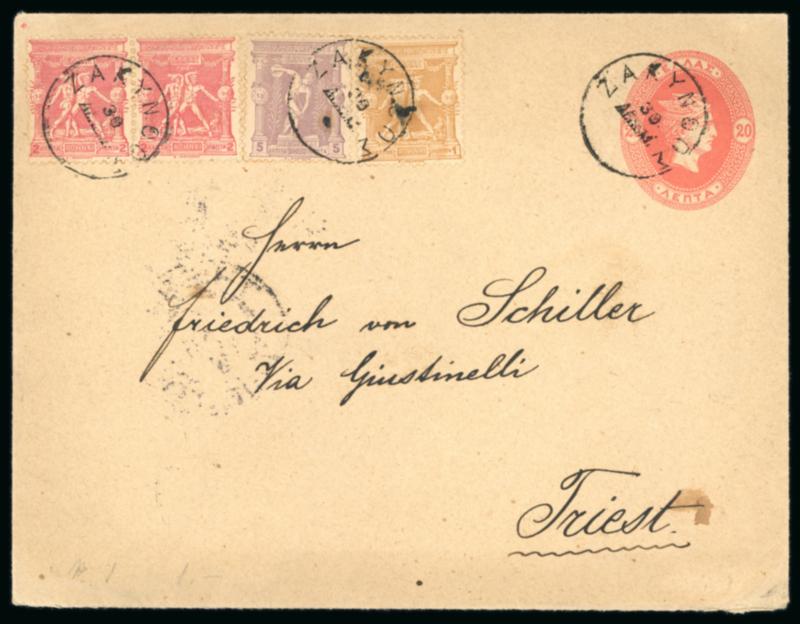 2 2
2 2
5 5
1
ΖΑΚΥΝΘΟΣ
30
ΖΑΚΥΝΘΟΣ
30
ΖΑΚΥΝΘΟΣ
30
ΕΛΛΑΣ
20 20
ΛΕΠΤΑ
Herrn
Friedrich von Schiller
Via Giustinelli
Triest.